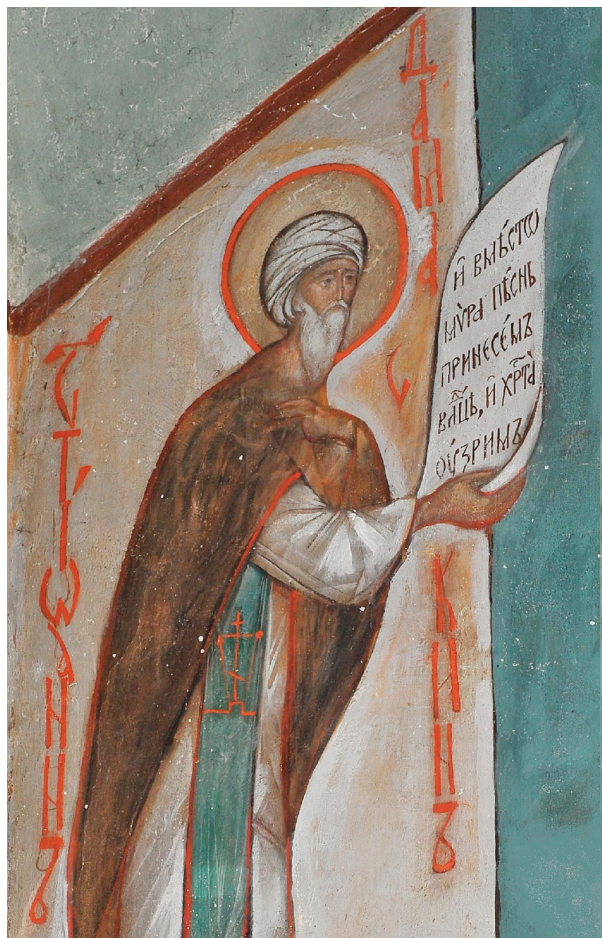 Ст҃ Іѡаннъ
Дамаскинъ
и҆ вмѣ́стѡ
мѵ́ра пѣ́снь
принесе́мъ
влⷣцѣ, и҆ хрⷭ҇та̀
оу҆́зримъ